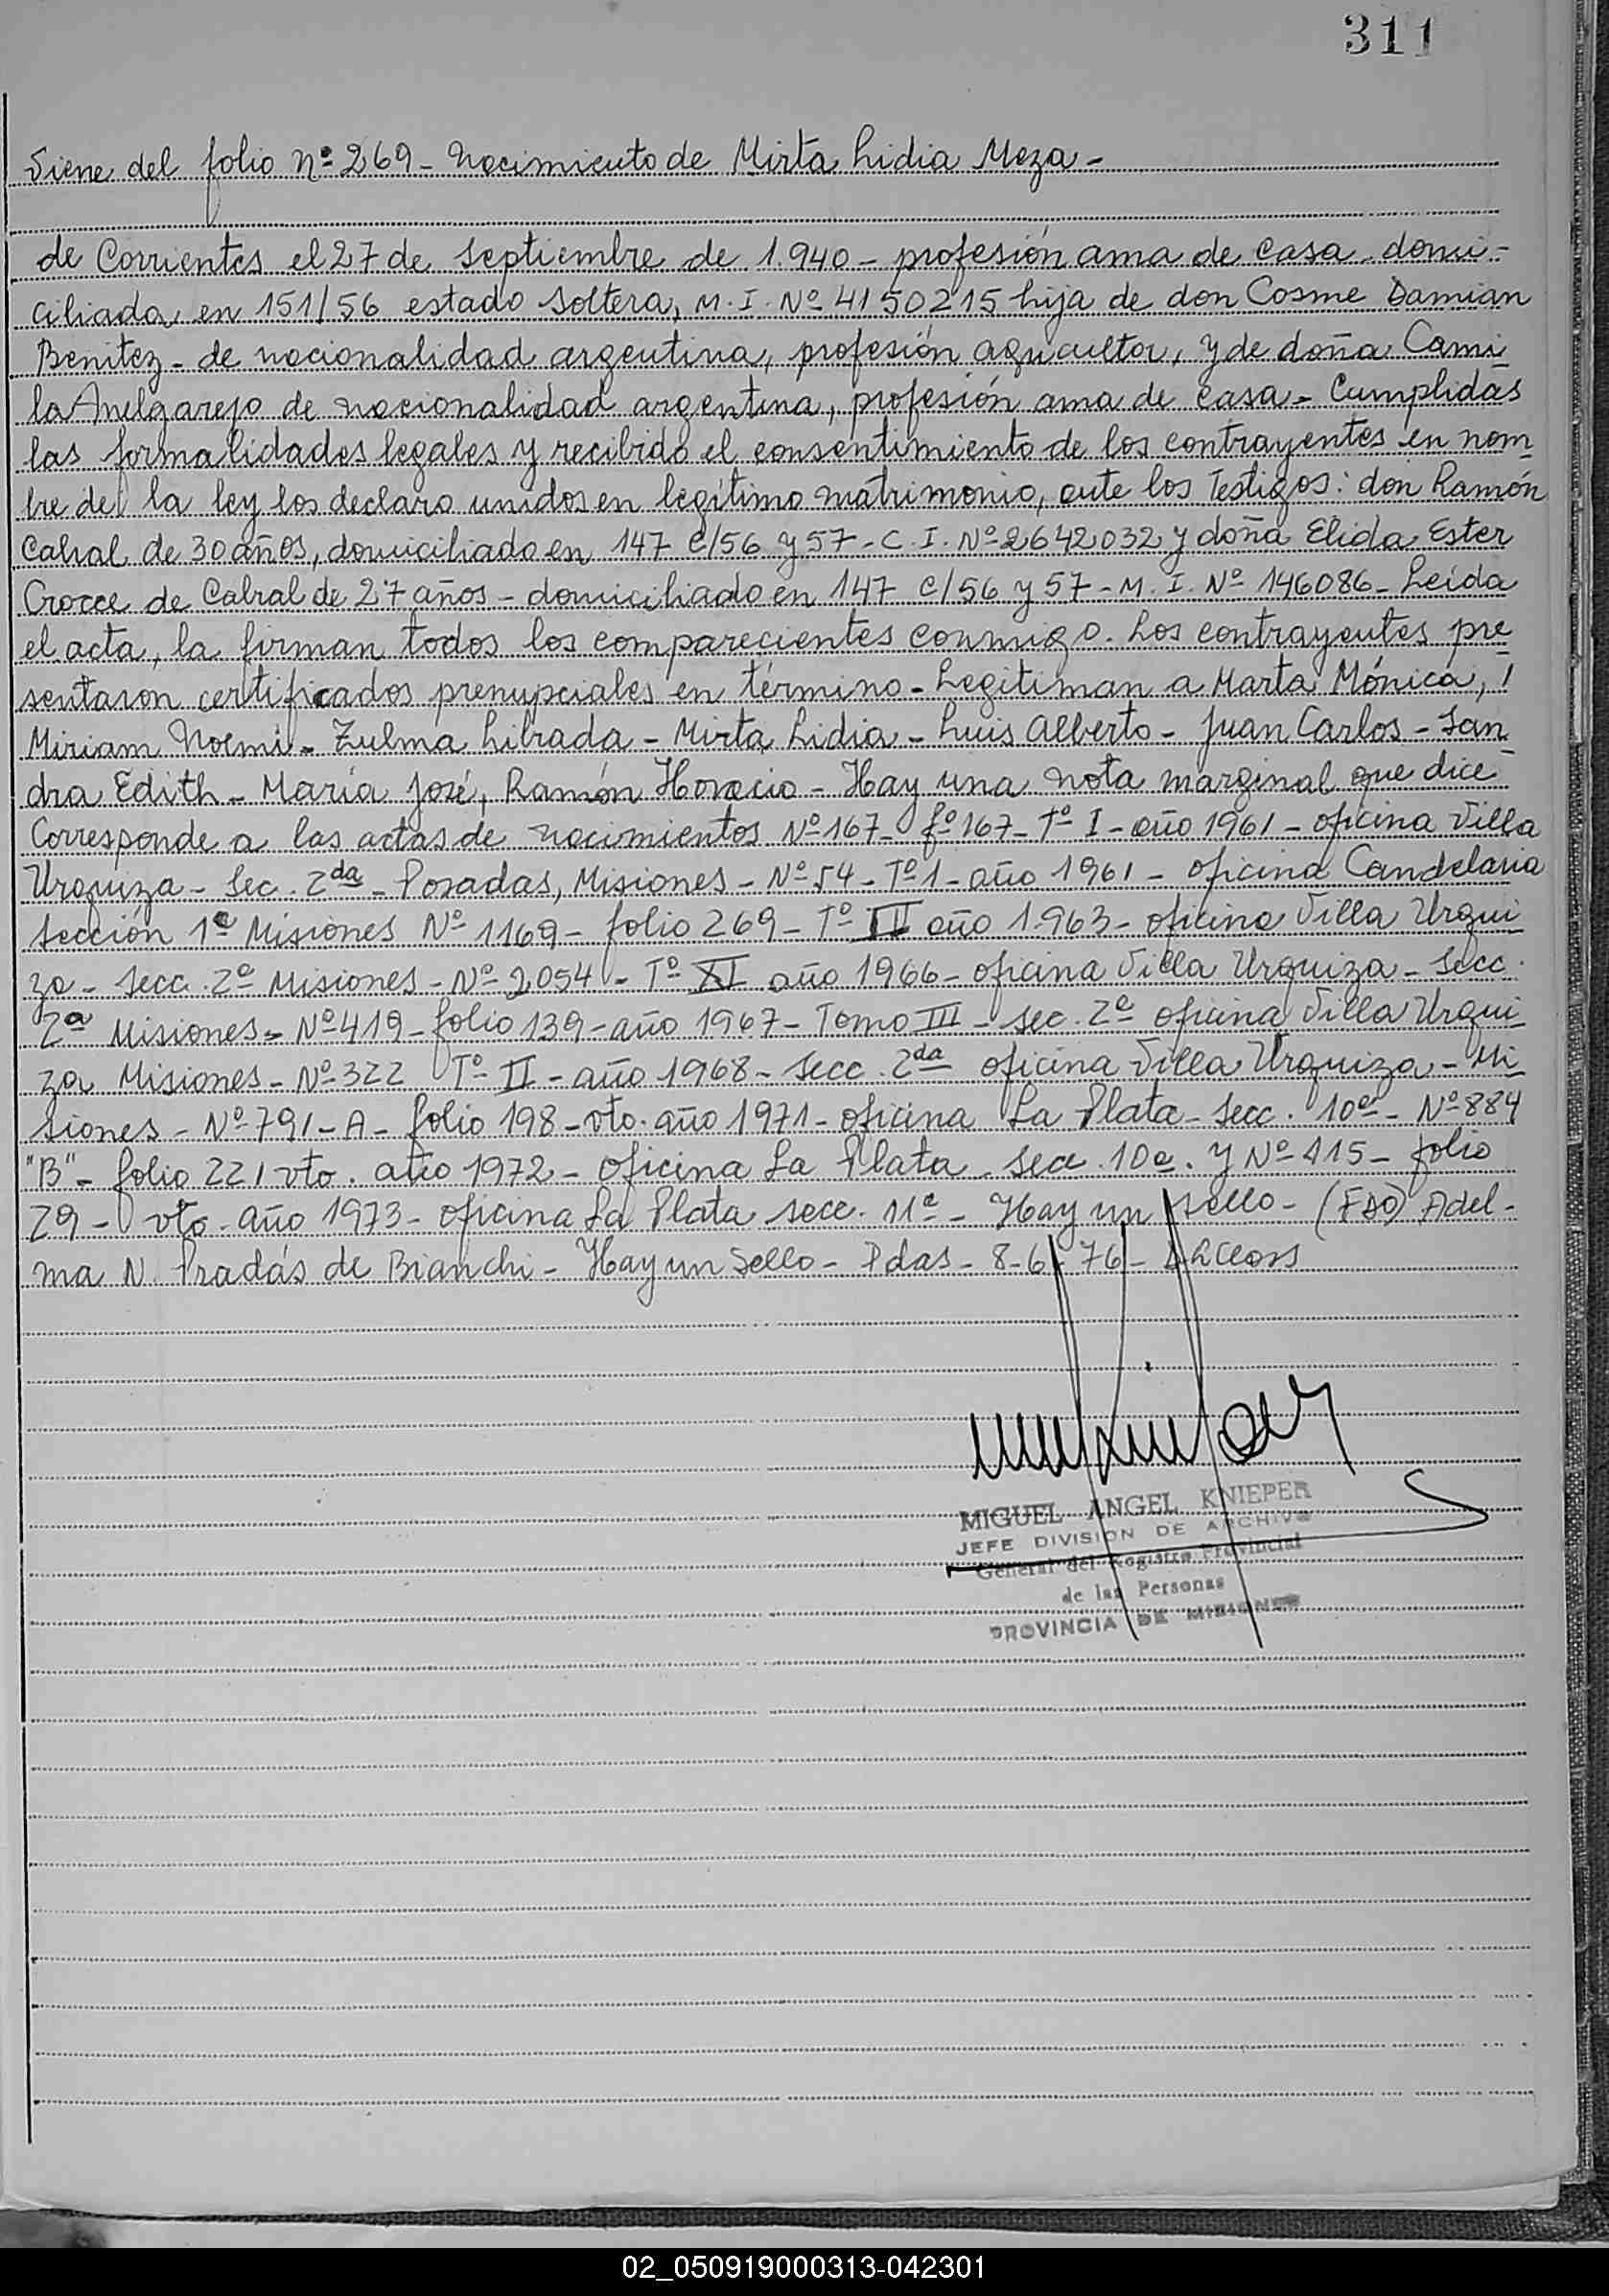 311
Viene del folio nº 269 - Nacimiento de Mirta Lidia Meza -
de Corrientes el 27 de Septiembre de 1.940 - profesión ama de casa - domi-
ciliada en 151/56 estado soltera, M. I. Nº 4150215 hija de don Cosme Damian
Benitez - de nacionalidad argentina, profesión agricultor, y de doña Cami
la Amelgarejo de nacionalidad argentina, profesión ama de casa - Cumplidas
las formalidades legales y recibido el consentimiento de los contrayentes en nom
bre de la ley los declaro unidos en legítimo matrimonio, ante los Testigos: don Ramón
Cabral de 30 años, domiciliado en 147 e/56 y 57 - C. I. Nº 2642032 y doña Elida Ester
Crocce de Cabral de 27 años - domiciliado en 147 e/56 y 57 - M. I. Nº 146086 - Leída
el acta, la firman todos los comparecientes conmigo. Los contrayentes pre
sentaron certificados prenupciales en término - Legitiman a Marta Mónica,
Miriam Noemi - Zulma Librada - Mirta Lidia - Luis Alberto - Juan Carlos - San
dra Edith - María José, Ramón Horacio - Hay una nota marginal que dice
Corresponde a las actas de nacimientos Nº 167 - fº 167 - Tº I - año 1961 - oficina Villa
Urquiza - Sec. 2da - Posadas, Misiones - Nº 54 - Tº 1 - año 1961 - oficina Candelaria
Sección 1ª Misiones Nº 1169 - folio 269 - Tº III año 1.963 - oficina Villa Urqui
za - Secc. 2ª Misiones - Nº 2054 - Tº XI año 1966 - oficina Villa Urquiza - Secc.
2ª Misiones - Nº 419 - folio 139 - año 1967 - Tomo III - sec. 2ª oficina Villa Urqui
za Misiones - Nº 322 Tº II - año 1968 - Secc. 2da oficina Villa Urquiza - Mi
siones - Nº 791 - A - folio 198 - vto. año 1971 - oficina La Plata - Secc. 10ª - Nº 884
"B" - folio 221 vto. año 1972 - oficina La Plata - secc. 10ª. y Nº 415 - folio
29 - vto - año 1973 - oficina La Plata secc. 11ª - Hay un sello - (FDO) Adel-
ma N. Pradás de Bianchi - Hay un Sello - Pdas - 8-6-76 -
MIGUEL ANGEL KNIEPER
JEFE DIVISION DE ARCHIVO
General del Registro Provincial
de las Personas
PROVINCIA DE MISIONES
02_050919000313-042301